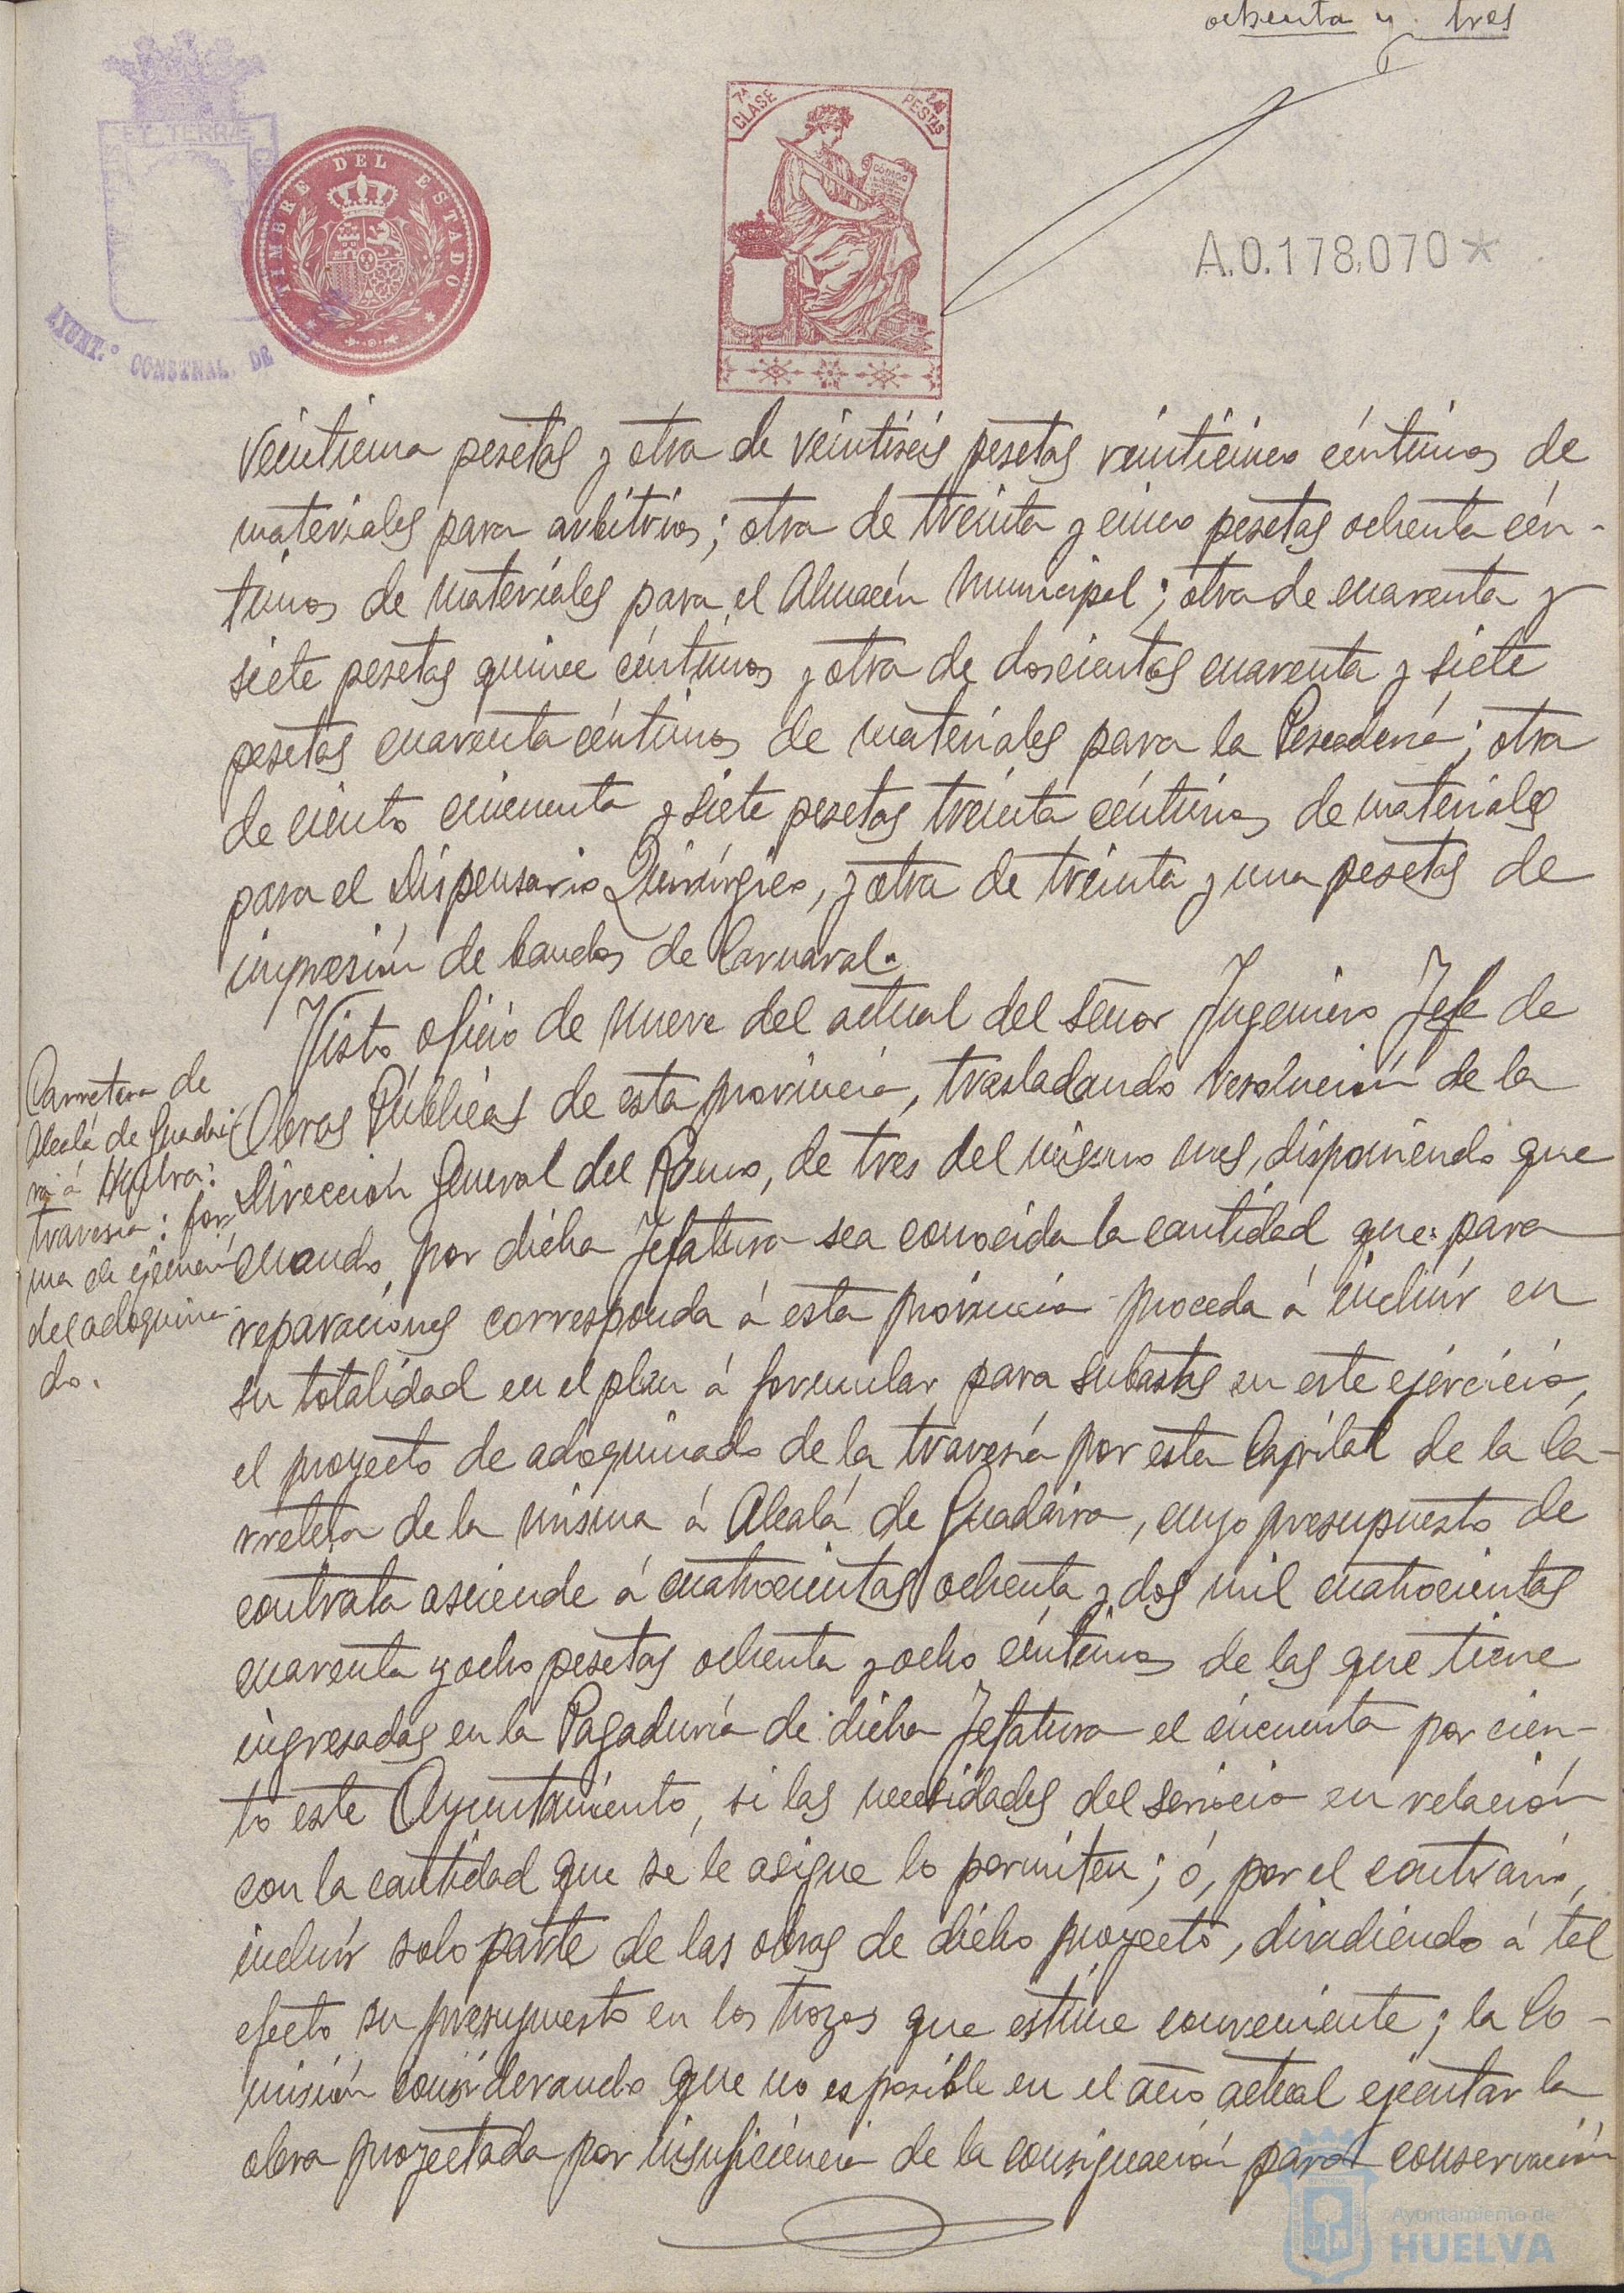 ochenta y tres
ET TERRÆ
TIMBRE DEL ESTADO
AYUNT.º CONSTNAL. DE
7ª CLASE
PESTAS
A.0.178,070*
veintiuna pesetas y otra de veintiseis pesetas veinticinco céntimos de
materiales para arbitrios; otra de treinta y cinco pesetas ochenta cén-
timos de materiales para el Almacén Municipal; otra de cuarenta y
siete pesetas quince céntimos y otra de doscientas cuarenta y siete
pesetas cuarenta céntimos de materiales para la Pescadería; otra
de ciento cincuenta y siete pesetas treinta céntimos de materiales
para el Dispensario Quirúrgico, y otra de treinta y una pesetas de
impresión de bandos de Carnaval.
Visto oficio de nueve del actual del señor Ingeniero Jefe de
Obras Públicas de esta provincia, trasladando resolución de la
Dirección General del Ramo, de tres del mismo mes, disponiendo que
cuando por dicha Jefatura sea conocida la cantidad que para
reparaciones corresponda á esta provincia proceda á incluír en
su totalidad en el plan á formular para subastas en este ejercicio,
el proyecto de adoquinado de la travesía por esta Capital de la Ca-
rretera de la misma á Alcalá de Guadaira, cuyo presupuesto de
contrata asciende á cuatrocientas ochenta y dos mil cuatrocientas
cuarenta y ocho pesetas ochenta y ocho céntimos de las que tiene
ingresadas en la Pagaduría de dicha Jefatura el cincuenta por cien-
to este Ayuntamiento, si las necesidades del servicio en relación
con la cantidad que se le asigue lo permiten; ó, por el contrario,
incluír solo parte de las obras de dicho proyecto, dividiendo á tal
efecto su presupuesto en los trozos que estime conveniente; la Co-
misión considerando que no es posible en el año actual ejecutar la
obra proyectada por insuficiencia de la consignación para conservación
Carretera de
Alcalá de Guadai-
ra á Huelva:
travesía: for-
ma de ejecución
del adoquina-
do.
Ayuntamiento de
HUELVA